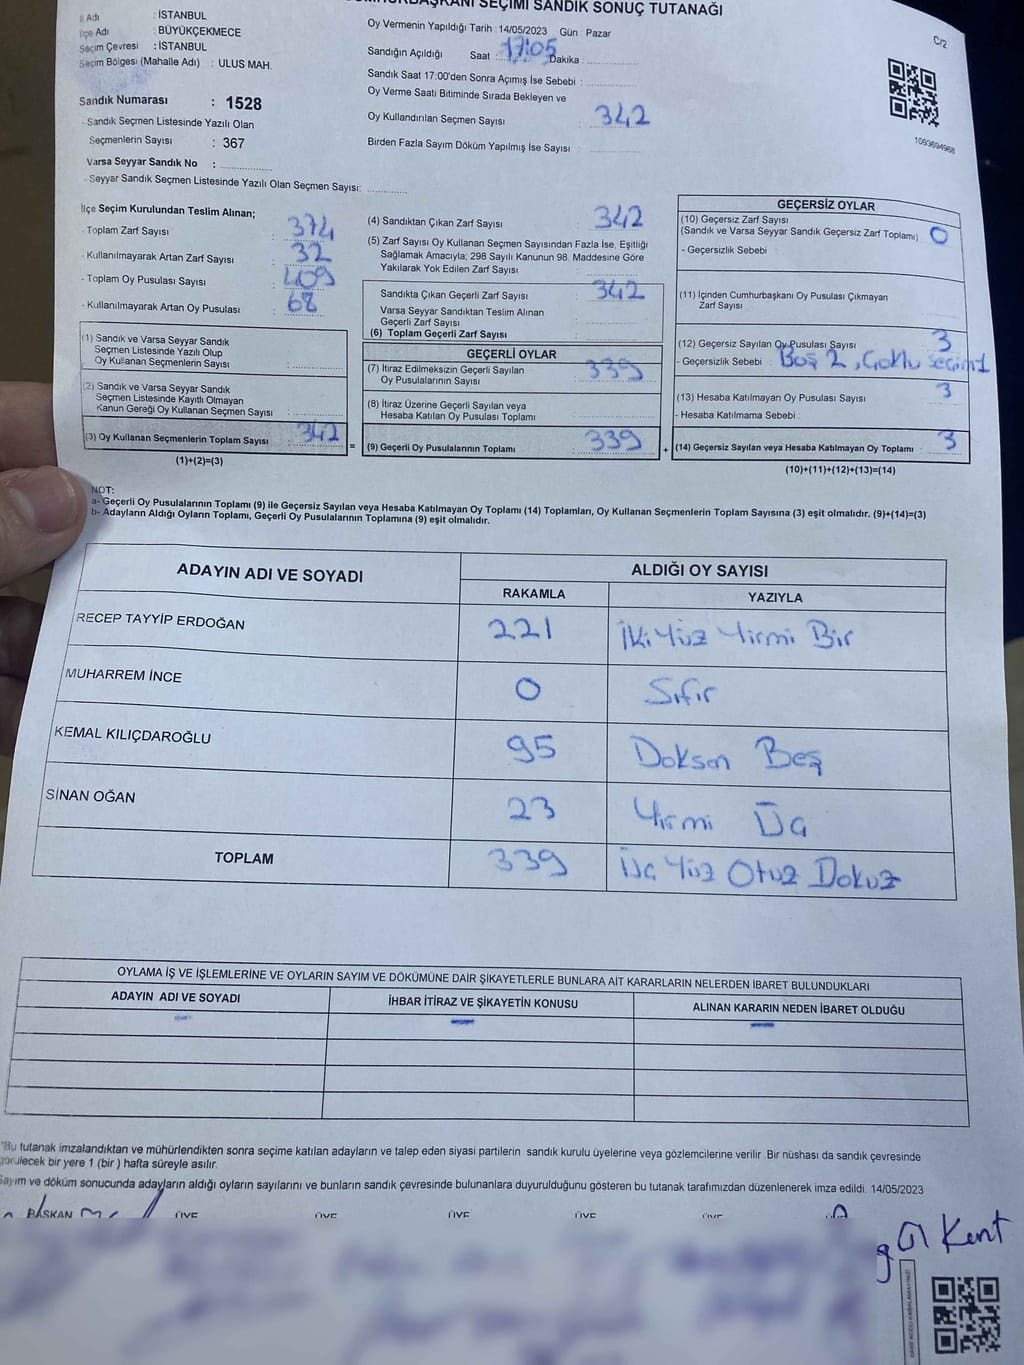 SEÇİMİ SANDIK SONUÇ TUTANAĞI
İl Adı : İSTANBUL
İlçe Adı : BÜYÜKÇEKMECE
Seçim Çevresi : İSTANBUL
Seçim Bölgesi (Mahalle Adı) : ULUS MAH.
Oy Vermenin Yapıldığı Tarih : 14/05/2023 Gün : Pazar
Sandığın Açıldığı Saat : 17:05 Dakika :
Sandık Saat 17:00'den Sonra Açımış İse Sebebi :
Oy Verme Saati Bitiminde Sırada Bekleyen ve
Oy Kullandırılan Seçmen Sayısı : 342
Birden Fazla Sayım Döküm Yapılmış İse Sayısı :
C/2
1093694968
Sandık Numarası : 1528
- Sandık Seçmen Listesinde Yazılı Olan
Seçmenlerin Sayısı : 367
Varsa Seyyar Sandık No :
- Seyyar Sandık Seçmen Listesinde Yazılı Olan Seçmen Sayısı:
İlçe Seçim Kurulundan Teslim Alınan;
- Toplam Zarf Sayısı : 374
- Kullanılmayarak Artan Zarf Sayısı : 32
- Toplam Oy Pusulası Sayısı : 409
- Kullanılmayarak Artan Oy Pusulası : 68
(1) Sandık ve Varsa Seyyar Sandık
Seçmen Listesinde Yazılı Olup
Oy Kullanan Seçmenlerin Sayısı :
(2) Sandık ve Varsa Seyyar Sandık
Seçmen Listesinde Kayıtlı Olmayan
Kanun Gereği Oy Kullanan Seçmen Sayısı :
(3) Oy Kullanan Seçmenlerin Toplam Sayısı : 342
(1)+(2)=(3)
(4) Sandıktan Çıkan Zarf Sayısı : 342
(5) Zarf Sayısı Oy Kullanan Seçmen Sayısından Fazla İse, Eşitliği
Sağlamak Amacıyla; 298 Sayılı Kanunun 98. Maddesine Göre
Yakılarak Yok Edilen Zarf Sayısı
Sandıkta Çıkan Geçerli Zarf Sayısı : 342
Varsa Seyyar Sandıktan Teslim Alınan
Geçerli Zarf Sayısı
(6) Toplam Geçerli Zarf Sayısı
GEÇERLİ OYLAR
(7) İtiraz Edilmeksizin Geçerli Sayılan
Oy Pusulalarının Sayısı : 339
(8) İtiraz Üzerine Geçerli Sayılan veya
Hesaba Katılan Oy Pusulası Toplamı
= (9) Geçerli Oy Pusulalarının Toplamı : 339
GEÇERSİZ OYLAR
(10) Geçersiz Zarf Sayısı
(Sandık ve Varsa Seyyar Sandık Geçersiz Zarf Toplamı) 0
- Geçersizlik Sebebi :
(11) İçinden Cumhurbaşkanı Oy Pusulası Çıkmayan
Zarf Sayısı
(12) Geçersiz Sayılan Oy Pusulası Sayısı 3
- Geçersizlik Sebebi : Boş 2, Çoklu Seçim 1
(13) Hesaba Katılmayan Oy Pusulası Sayısı 3
- Hesaba Katılmama Sebebi :
+ (14) Geçersiz Sayılan veya Hesaba Katılmayan Oy Toplamı : 3
(10)+(11)+(12)+(13)=(14)
NOT:
a- Geçerli Oy Pusulalarının Toplamı (9) ile Geçersiz Sayılan veya Hesaba Katılmayan Oy Toplamı (14) Toplamları, Oy Kullanan Seçmenlerin Toplam Sayısına (3) eşit olmalıdır. (9)+(14)=(3)
b- Adayların Aldığı Oyların Toplamı, Geçerli Oy Pusulalarının Toplamına (9) eşit olmalıdır.
ADAYIN ADI VE SOYADI
ALDIĞI OY SAYISI
RAKAMLA YAZIYLA
RECEP TAYYİP ERDOĞAN 221 İki Yüz Yirmi Bir
MUHARREM İNCE 0 Sıfır
KEMAL KILIÇDAROĞLU 95 Doksan Beş
SİNAN OĞAN 23 Yirmi Üç
TOPLAM 339 Üç Yüz Otuz Dokuz
OYLAMA İŞ VE İŞLEMLERİNE VE OYLARIN SAYIM VE DÖKÜMÜNE DAİR ŞİKAYETLERLE BUNLARA AİT KARARLARIN NELERDEN İBARET BULUNDUKLARI
ADAYIN ADI VE SOYADI İHBAR İTİRAZ VE ŞİKAYETİN KONUSU ALINAN KARARIN NEDEN İBARET OLDUĞU
"Bu tutanak imzalandıktan ve mühürlendikten sonra seçime katılan adayların ve talep eden siyasi partilerin sandık kurulu üyelerine veya gözlemcilerine verilir. Bir nüshası da sandık çevresinde
görülecek bir yere 1 (bir) hafta süreyle asılır.
Sayım ve döküm sonucunda adayların aldığı oyların sayılarını ve bunların sandık çevresinde bulunanlara duyurulduğunu gösteren bu tutanak tarafımızdan düzenlenerek imza edildi. 14/05/2023
BAŞKAN ÜYE ÜYE ÜYE ÜYE ÜYE
Kent